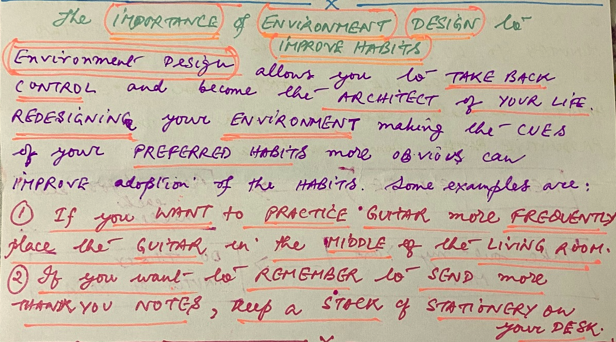 The IMPORTANCE of ENVIRONMENT DESIGN to
IMPROVE HABITS
Environment Design allows you to TAKE BACK
CONTROL and become the ARCHITECT of YOUR LIFE.
REDESIGNING your ENVIRONMENT making the CUES
of your PREFERRED HABITS more OBVIOUS can
IMPROVE adoption of the HABITS. Some examples are:
① If you WANT to PRACTICE GUITAR more FREQUENTLY
place the GUITAR in the MIDDLE of the LIVING ROOM.
② If you want to REMEMBER to SEND more
THANK YOU NOTES, keep a STOCK of STATIONERY on
your DESK.